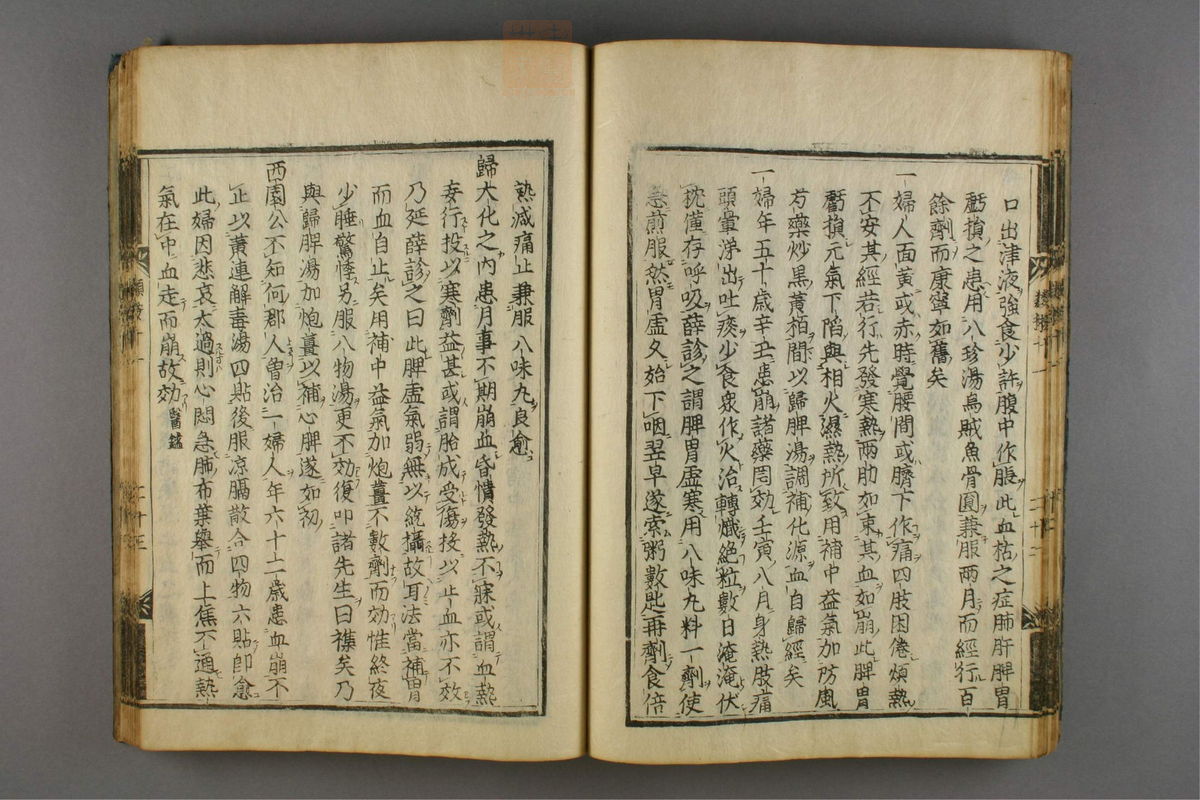 口出津液強食少許腹中作脹此血枯之症肺肝脾胃
虧損之患用八珍湯烏賊魚骨圓兼服兩月而經行百
餘劑而康寧如舊矣
一婦人面黃或赤時覺腰間或臍下作痛四肢困倦煩熱
不安其經若行先發寒熱兩肋如束其血如崩此脾胃
虧損元氣下陷與相火濕熱所致用補中益氣加防風
芍藥炒黑黃栢間以歸脾湯調補化源血自歸經矣
一婦年五十歲辛丑患崩諸藥罔効壬寅八月身熱肢痛
頭暈涕出吐痰少食衆作火治轉熾絕粒數日淹淹伏
枕僅存呼吸薛診之謂脾胃虛寒用八味丸料一劑使
急煎服然胃虛久始下咽翌早遂索粥數匙再劑食倍
熱減痛止兼服八味丸良愈
歸大化之內患月事不期崩血昏憒發熱不寐或謂血熱
妄行投以寒劑益甚或謂胎成受傷投以止血亦不效
乃延薛診之曰此脾虛氣弱無以統攝故耳法當補胃
而血自止矣用補中益氣加炮薑不數劑而効惟終夜
少睡驚悸另服八物湯更不効復叩諸先生曰襍矣乃
與歸脾湯加炮薑以補心脾遂如初
西園公不知何郡人曾治一婦人年六十二歲患血崩不
止以萧連解毒湯四貼後服凉膈散合四物六貼即愈
此婦因悲哀太過則心悶急肺布葉舉而上焦不通熱
氣在中血走而崩故効醫鑑